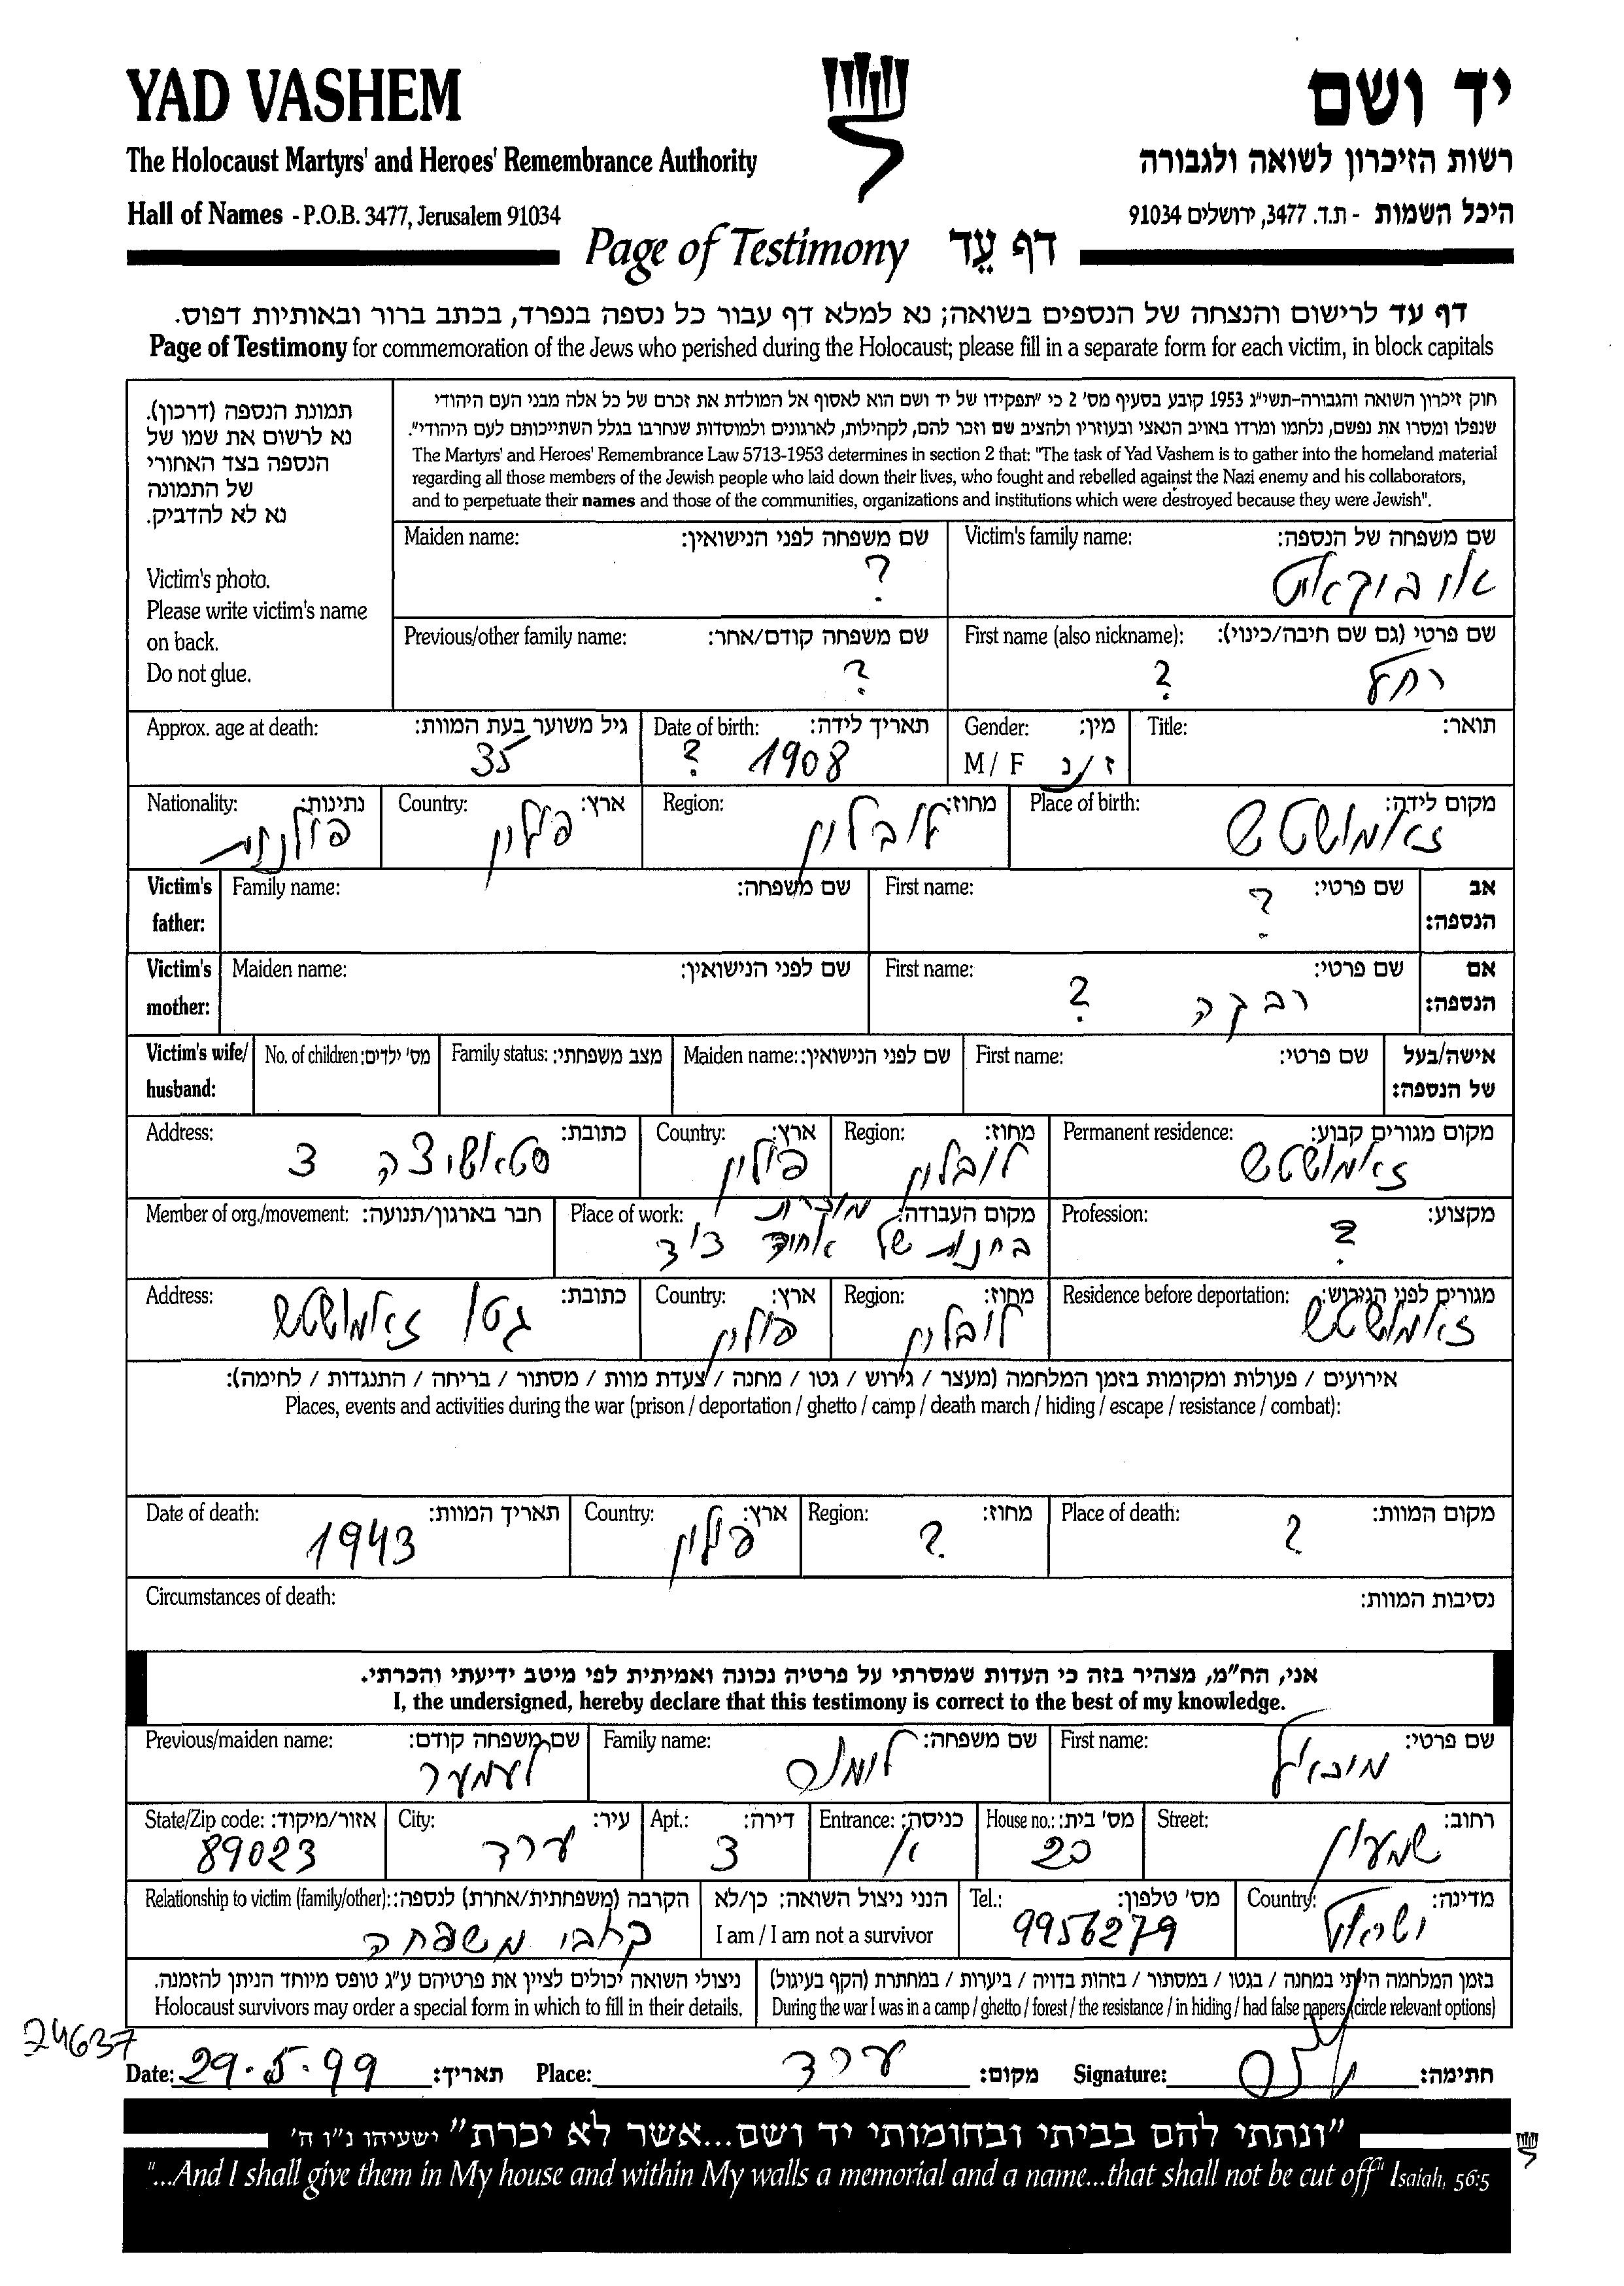 YAD VASHEM
יד ושם
The Holocaust Martyrs' and Heroes' Remembrance Authority
רשות הזיכרון לשואה ולגבורה
Hall of Names - P.O.B. 3477, Jerusalem 91034
היכל השמות - ת.ד. 3477, ירושלים 91034
Page of Testimony דף עֵד
דף עד לרישום והנצחה של הנספים בשואה; נא למלא דף עבור כל נספה בנפרד, בכתב ברור ובאותיות דפוס.
Page of Testimony for commemoration of the Jews who perished during the Holocaust; please fill in a separate form for each victim, in block capitals
תמונת הנספה (דרכון).
נא לרשום את שמו של
הנספה בצד האחורי
של התמונה
נא לא להדביק.
Victim's photo.
Please write victim's name
on back.
Do not glue.
חוק זיכרון השואה והגבורה-תשי"ג 1953 קובע בסעיף מס' 2 כי "תפקידו של יד ושם הוא לאסוף אל המולדת את זכרם של כל אלה מבני העם היהודי
שנפלו ומסרו את נפשם, נלחמו ומרדו באויב הנאצי ובעוזריו ולהציב שם וזכר להם, לקהילות, לארגונים ולמוסדות שנחרבו בגלל השתייכותם לעם היהודי".
The Martyrs' and Heroes' Remembrance Law 5713-1953 determines in section 2 that: "The task of Yad Vashem is to gather into the homeland material
regarding all those members of the Jewish people who laid down their lives, who fought and rebelled against the Nazi enemy and his collaborators,
and to perpetuate their names and those of the communities, organizations and institutions which were destroyed because they were Jewish".
Victim's family name: שם משפחה של הנספה:
Maiden name: שם משפחה לפני הנישואין:
?
First name (also nickname): שם פרטי (גם שם חיבה/כינוי):
רחל ?
Previous/other family name: שם משפחה קודם/אחר:
?
Title: תואר:
Gender: מין:
M / F ז/נ
Date of birth: תאריך לידה:
? 1908
Approx. age at death: גיל משוער בעת המוות:
35
Place of birth: מקום לידה:
זאמושטש
Region: מחוז:
לובלין
Country: ארץ:
פולין
Nationality: נתינות:
פולנית
Victim's father: אב הנספה:
First name: שם פרטי:
?
Family name: שם משפחה:
Victim's mother: אם הנספה:
First name: שם פרטי:
רבקה ?
Maiden name: שם לפני הנישואין:
Victim's wife/ husband: אישה/בעל של הנספה:
First name: שם פרטי:
Maiden name: שם לפני הנישואין:
Family status: מצב משפחתי:
No. of children: מס' ילדים:
Permanent residence: מקום מגורים קבוע:
זאמושטש
Region: מחוז:
לובלין
Country: ארץ:
פולין
Address: כתובת:
סטאשיצה 3
Profession: מקצוע:
?
Place of work: מקום העבודה:
מוכרת
בחנות של אחיד דוד
Member of org./movement: חבר בארגון/תנועה:
Residence before deportation: מגורים לפני הגירוש:
זאמושטש
Region: מחוז:
לובלין
Country: ארץ:
פולין
Address: כתובת:
גטו זאמושטש
אירועים / פעולות ומקומות בזמן המלחמה (מעצר / גירוש / גטו / מחנה / צעדת מוות / מסתור / בריחה / התנגדות / לחימה):
Places, events and activities during the war (prison / deportation / ghetto / camp / death march / hiding / escape / resistance / combat):
Place of death: מקום המוות:
?
Region: מחוז:
?
Country: ארץ:
פולין
Date of death: תאריך המוות:
1943
Circumstances of death: נסיבות המוות:
אני, הח"מ, מצהיר בזה כי העדות שמסרתי על פרטיה נכונה ואמיתית לפי מיטב ידיעתי והכרתי.
I, the undersigned, hereby declare that this testimony is correct to the best of my knowledge.
First name: שם פרטי:
מיכאיל
Family name: שם משפחה:
לומנס
Previous/maiden name: שם משפחה קודם:
לעמער
Street: רחוב:
שמעון
House no.: מס' בית:
20
Entrance: כניסה:
א
Apt.: דירה:
3
City: עיר:
ערד
State/Zip code: אזור/מיקוד:
89023
Country: מדינה:
ישראל
Tel.: מס' טלפון:
9956279
הנני ניצול השואה: כן/לא
I am / I am not a survivor
Relationship to victim (family/other): הקרבה (משפחתית/אחרת) לנספה:
קרובי משפחה
בזמן המלחמה הייתי במחנה / בגטו / במסתור / בזהות בדויה / ביערות / במחתרת (הקף בעיגול)
During the war I was in a camp / ghetto / forest / the resistance / in hiding / had false papers (circle relevant options)
ניצולי השואה יכולים לציין את פרטיהם ע"ג טופס מיוחד הניתן להזמנה.
Holocaust survivors may order a special form in which to fill in their details.
24637
Date: 29.5.99 תאריך: Place: ערד מקום: Signature: חתימה:
"ונתתי להם בביתי ובחומותי יד ושם...אשר לא יכרת" ישעיהו נ"ו ה'
"...And I shall give them in My house and within My walls a memorial and a name...that shall not be cut off" Isaiah, 56:5